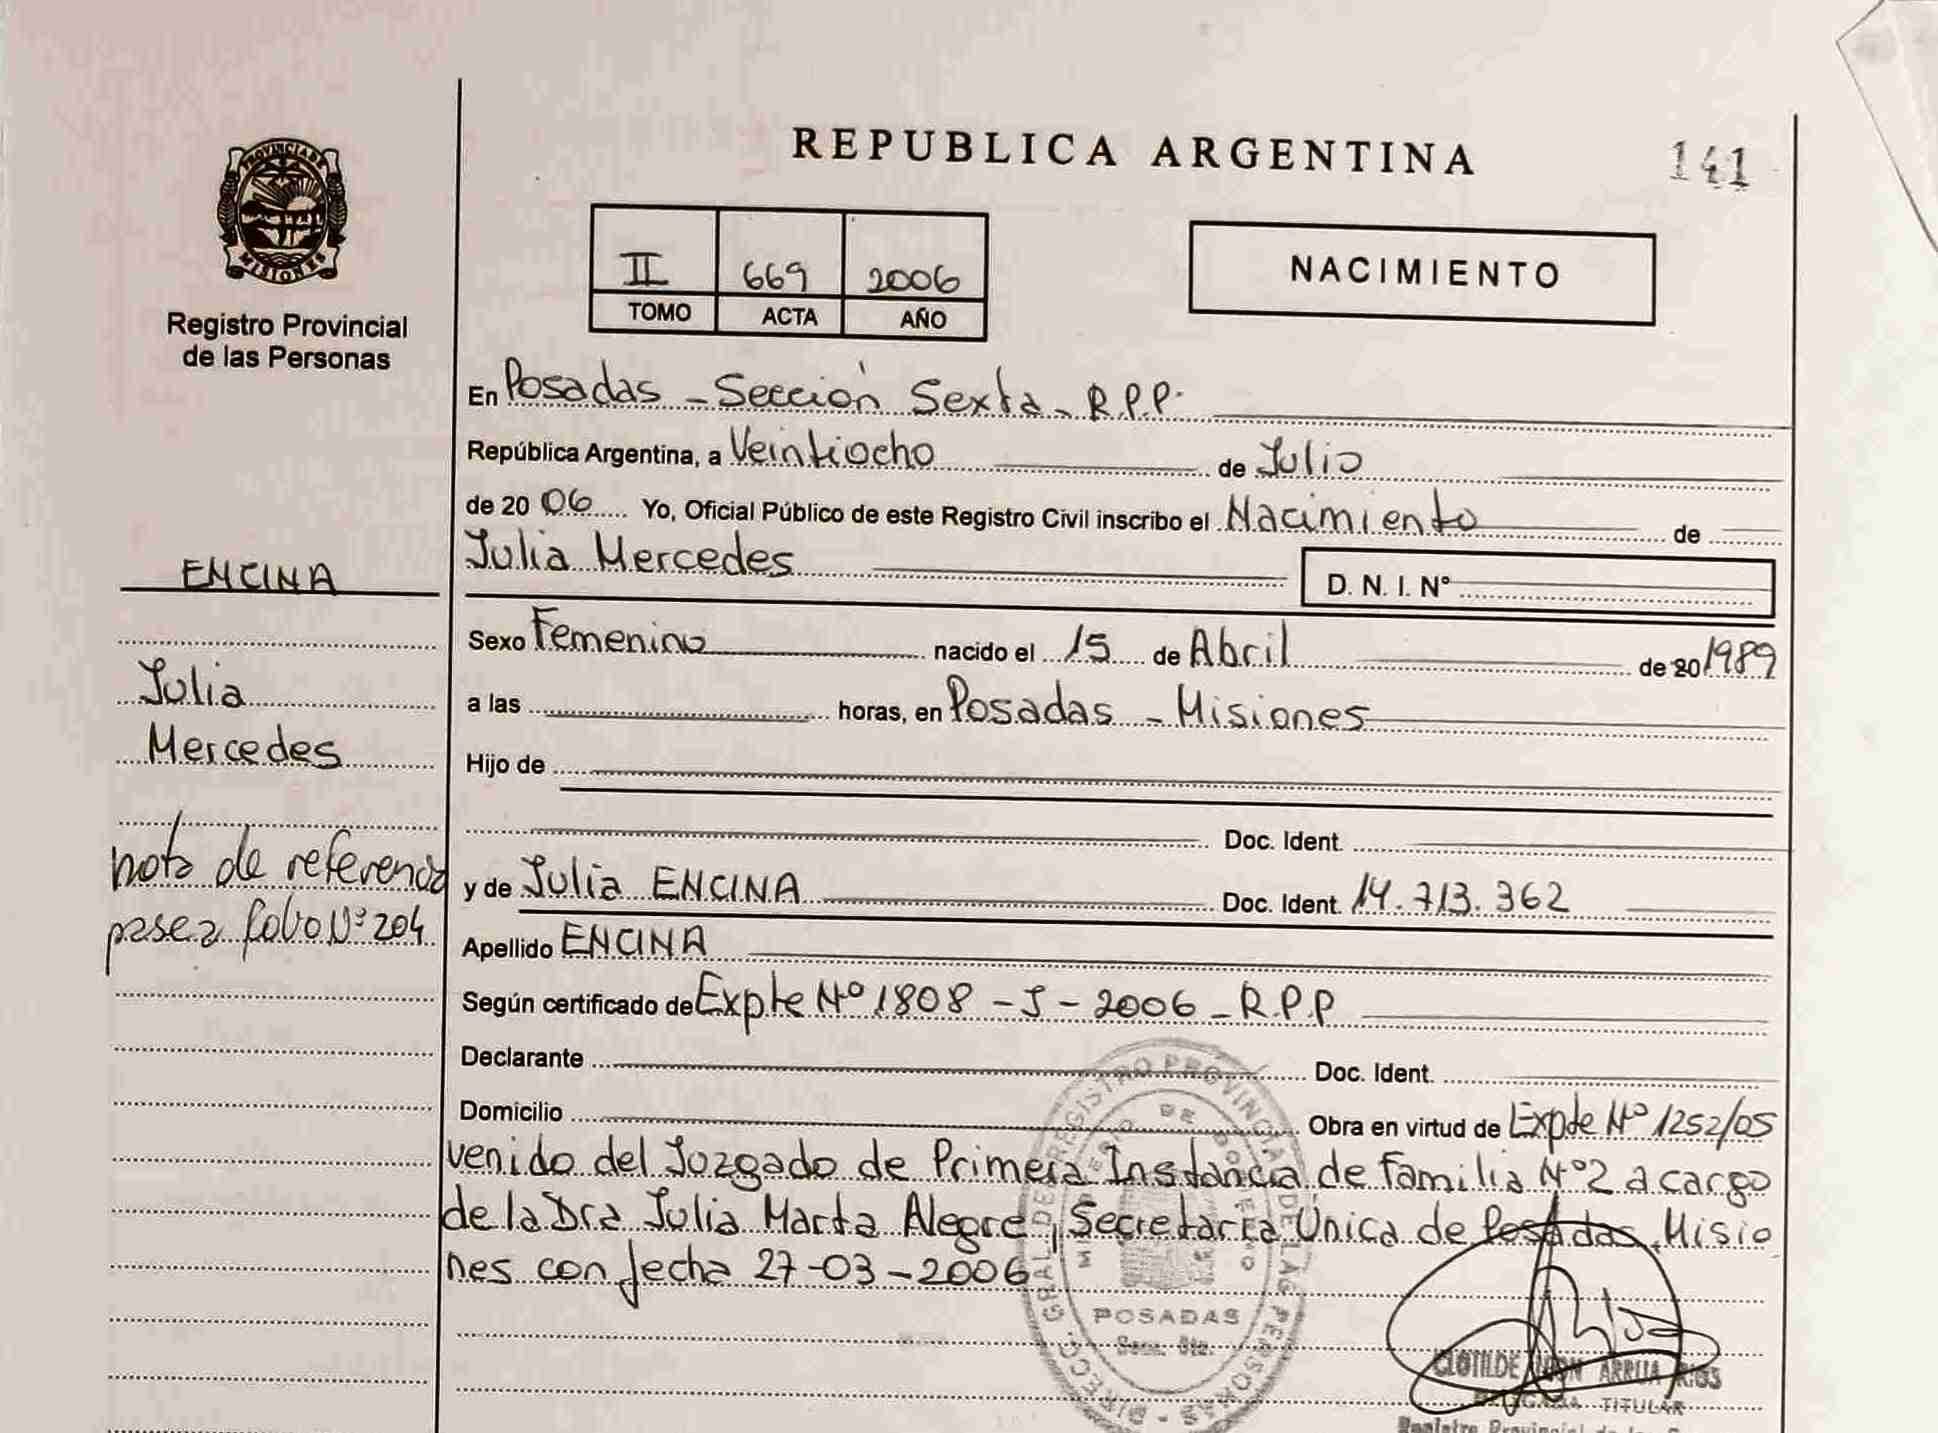 REPUBLICA ARGENTINA
141
PROVINCIA DE
MISIONES
Registro Provincial
de las Personas
II 669 2006
TOMO ACTA AÑO
NACIMIENTO
En Posadas - Sección Sexta - R.P.P.
República Argentina, a Veintiocho de Julio
de 2006 Yo, Oficial Público de este Registro Civil inscribo el Nacimiento de
Julia Mercedes
D. N. I. Nº
ENCINA
Julia
Mercedes
nota de referencia
pase a folio Nº 204
Sexo Femenino nacido el 15 de Abril de 20 1989
a las horas, en Posadas - Misiones
Hijo de
Doc. Ident.
y de Julia ENCINA Doc. Ident. 14.713.362
Apellido ENCINA
Según certificado de Expte Nº 1808 - J - 2006 - R.P.P
Declarante Doc. Ident.
Domicilio Obra en virtud de Expte Nº 1252/05
venido del Juzgado de Primera Instancia de Familia Nº 2 a cargo
de la Dra Julia Marta Alegre, Secretaria Única de Posadas, Misio
nes con fecha 27-03-2006
DIRECC. GRAL DE REGISTRO PROVINCIAL DE LAS PERSONAS
MINISTERIO DE GOBIERNO
POSADAS
CLOTILDE ARRUA RIOS
DELEGADA TITULAR
Registro Provincial de las